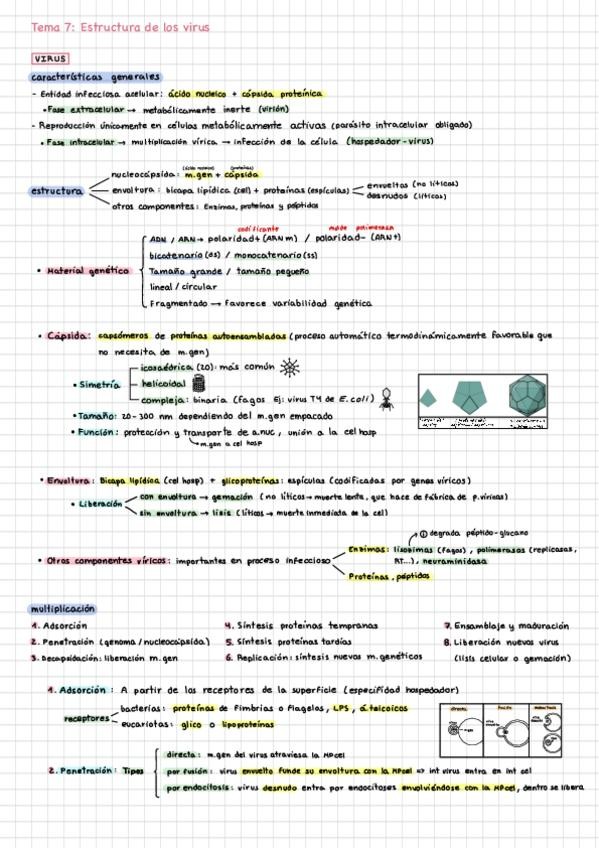 Tema 7: Estructura de los virus
VIRUS
características generales
- Entidad infecciosa acelular: ácido nucleico + cápsida proteínica
• Fase extracelular → metabólicamente inerte (virión)
- Reproducción únicamente en células metabólicamente activas (parásito intracelular obligado)
• Fase intracelular → multiplicación vírica → infección de la célula (hospedador-virus)
estructura
(ácido nucleico) (proteínas)
nucleocápsida: m.gen + cápsida
envoltura: bicapa lipídica (cel) + proteínas (espículas)
envueltos (no líticos)
desnudos (líticos)
otros componentes: Enzimas, proteínas y péptidos
• Material genético
codificante molde polimerasa
ADN / ARN → polaridad+ (ARNm) / polaridad- (ARNt)
bicatenario (ds) / monocatenario (ss)
Tamaño grande / tamaño pequeño
lineal / circular
Fragmentado → Favorece variabilidad genética
• Cápsida: capsómeros de proteínas autoensambladas (proceso automático termodinámicamente favorable que
no necesita de m.gen)
• Simetría
icosaédrica (20): más común
helicoidal
compleja: binaria (fagos Ej: virus T4 de E.coli)
• Tamaño: 20-300 nm dependiendo del m.gen empacado
• Función: protección y transporte de a.nuc, unión a la cel hosp
↳ m.gen a cel hosp
• Envoltura: Bicapa lipídica (cel hosp) + glicoproteínas: espículas (codificadas por genes víricos)
• Liberación
con envoltura → gemación (no líticos → muerte lenta, que hace de fábrica de p.víricas)
sin envoltura → lisis (líticos → muerte inmediata de la cel)
• Otros componentes víricos: importantes en proceso infeccioso
① degrada péptido-glucano
Enzimas: lisozimas (fagos), polimerasas (replicasas,
RT...), neuraminidasa
Proteínas, péptidos
multiplicación
1. Adsorción
2. Penetración (genoma/nucleocápsida)
3. Decapsidación: liberación m.gen
4. Síntesis proteínas tempranas
5. Síntesis proteínas tardías
6. Replicación: síntesis nuevos m.genéticos
7. Ensamblaje y maduración
8. Liberación nuevos virus
(lisis celular o gemación)
1. Adsorción: A partir de los receptores de la superficie (especifidad hospedador)
receptores
bacterias: proteínas de Fimbrias o Flagelos, LPS, á.teicoicos
eucariotas: glico o lipoproteínas
2. Penetración: Tipos
directa: m.gen del virus atraviesa la MPcel
por fusión: virus envuelto funde su envoltura con la MPcel ⇒ int virus entra en int cel
por endocitosis: virus desnudo entra por endocitoses envolviéndose con la MPcel, dentro se libera